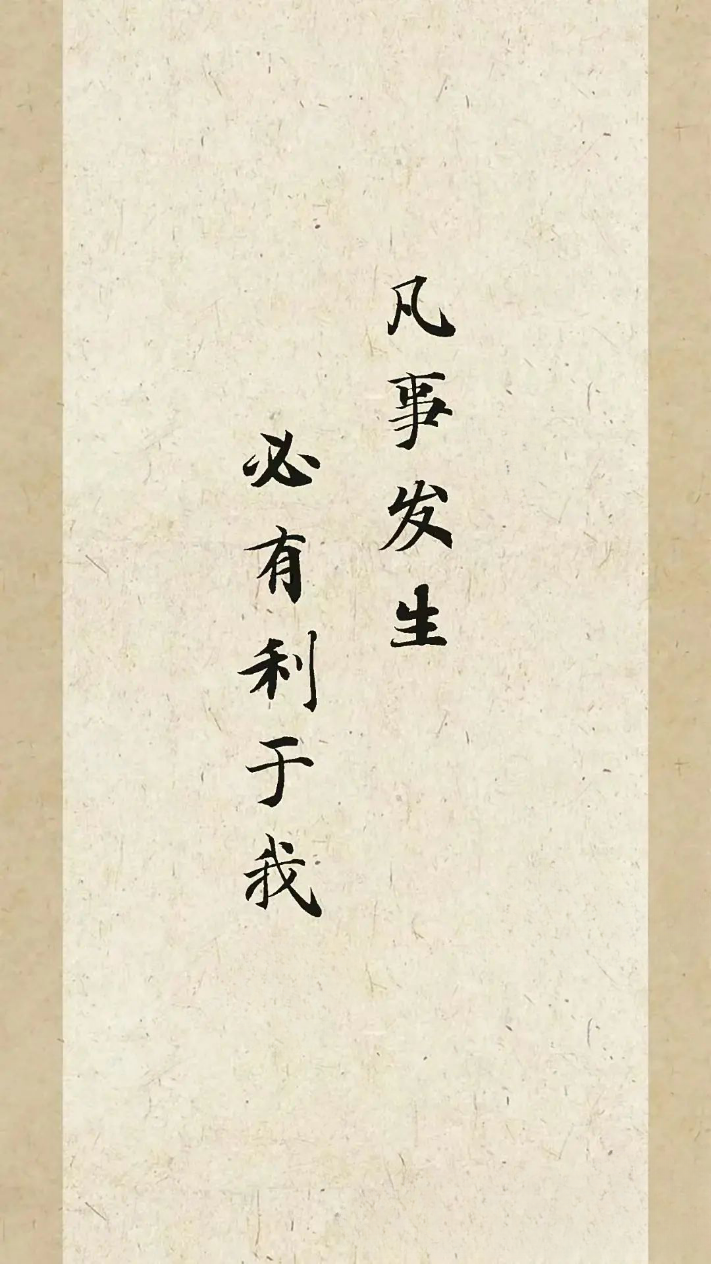 凡事发生
必有利于我